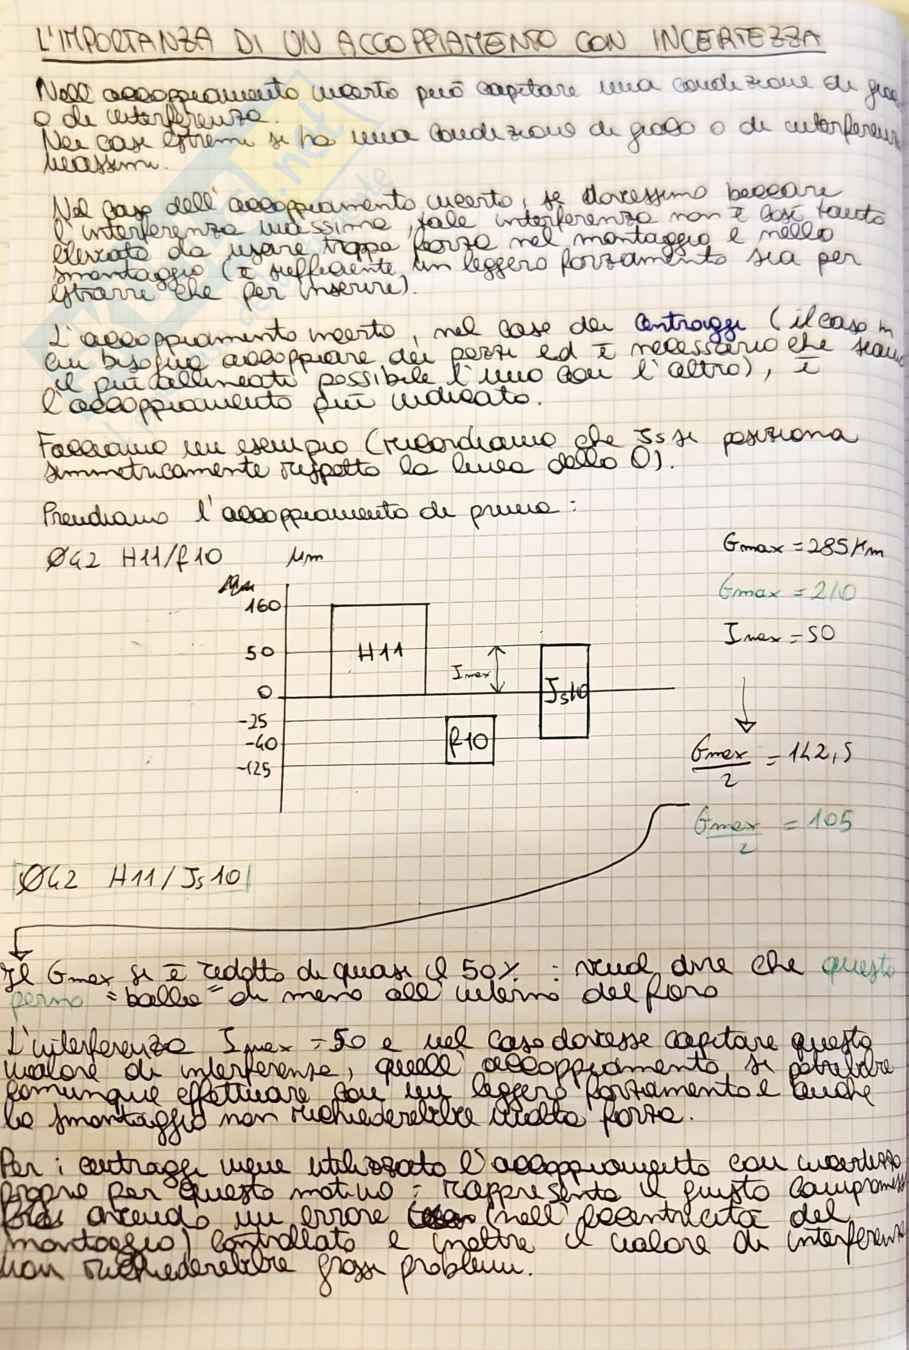 L'IMPORTANZA DI UN ACCOPPIAMENTO CON INCERTEZZA
Nell'accoppiamento incerto può capitare una condizione di gioco
o di interferenza.
Nei casi estremi si ha una condizione di gioco o di interferenza
massimi.
Nel caso dell'accoppiamento incerto, se dovessimo beccare
l'interferenza massima, tale interferenza non è così tanto
elevata da usare troppa forza nel montaggio e nello
smontaggio (è sufficiente un leggero forzamento sia per
estrarre che per inserire).
L'accoppiamento incerto, nel caso dei centraggi (il caso in
cui bisogna accoppiare dei pezzi ed è necessario che siano
il più allineati possibile l'uno con l'altro), è
l'accoppiamento più indicato.
Facciamo un esempio (ricordiamo che Js si posiziona
simmetricamente rispetto la linea dello 0).
Prendiamo l'accoppiamento di prima:
Ø42 H11/f10 μm
Gmax = 285 μm
μm
Gmax = 210
160
Imax = 50
50
H11
Imax
0
Js10
-25
-40
f10
-125
Gmax/2 = 142,5
Gmax/2 = 105
Ø42 H11/Js10
Il Gmax si è ridotto di quasi il 50% : vuol dire che questo
perno "balla" di meno all'interno del foro
L'interferenza Imax = 50 e nel caso dovesse capitare questo
valore di interferenza, quell'accoppiamento si potrebbe
comunque effettuare con un leggero forzamento e anche
lo smontaggio non richiederebbe molta forza.
Per i centraggi viene utilizzato l'accoppiamento con incertezza
proprio per questo motivo: rappresenta il giusto compromesso
avendo un errore (nell'eccentricità del
montaggio) controllato e inoltre il valore di interferenza
non richiederebbe grossi problemi.